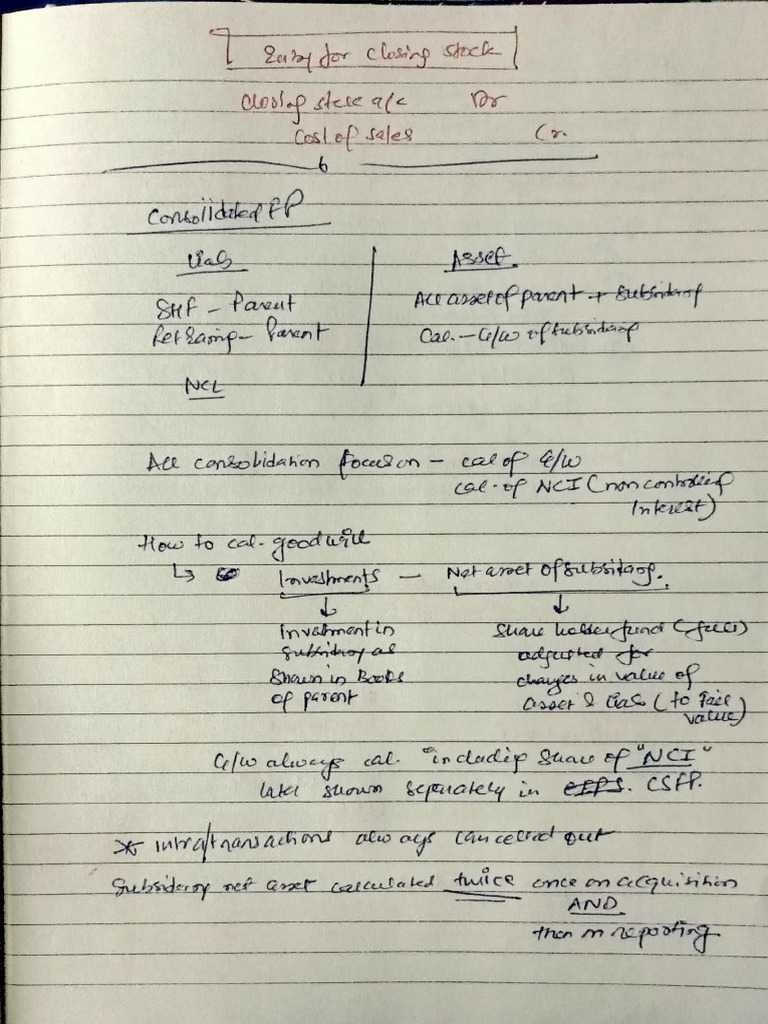 Entry for closing stock
Closing stock a/c Dr
Cost of sales Cr
Consolidated FP
Liab Asset
SHF - Parent All asset of parent + subsidiary
Ret Earing - Parent Cal. - G/W of subsidiary
NCL
All consolidation focus on - cal of G/W
cal. of NCI (non controlling
Interest)
How to cal. goodwill
↳ Investments - Net asset of subsidiary.
Investment in Share holder fund (full)
subsidiary as adjusted for
Shown in Books changes in value of
of parent asset & liab (to fair
value)
G/W always cal. "including share of "NCI"
later shown seperately in CSFP.
* intra/transactions always cancelled out
Subsidiary net asset calculated twice once on acquisition
AND
then on reporting